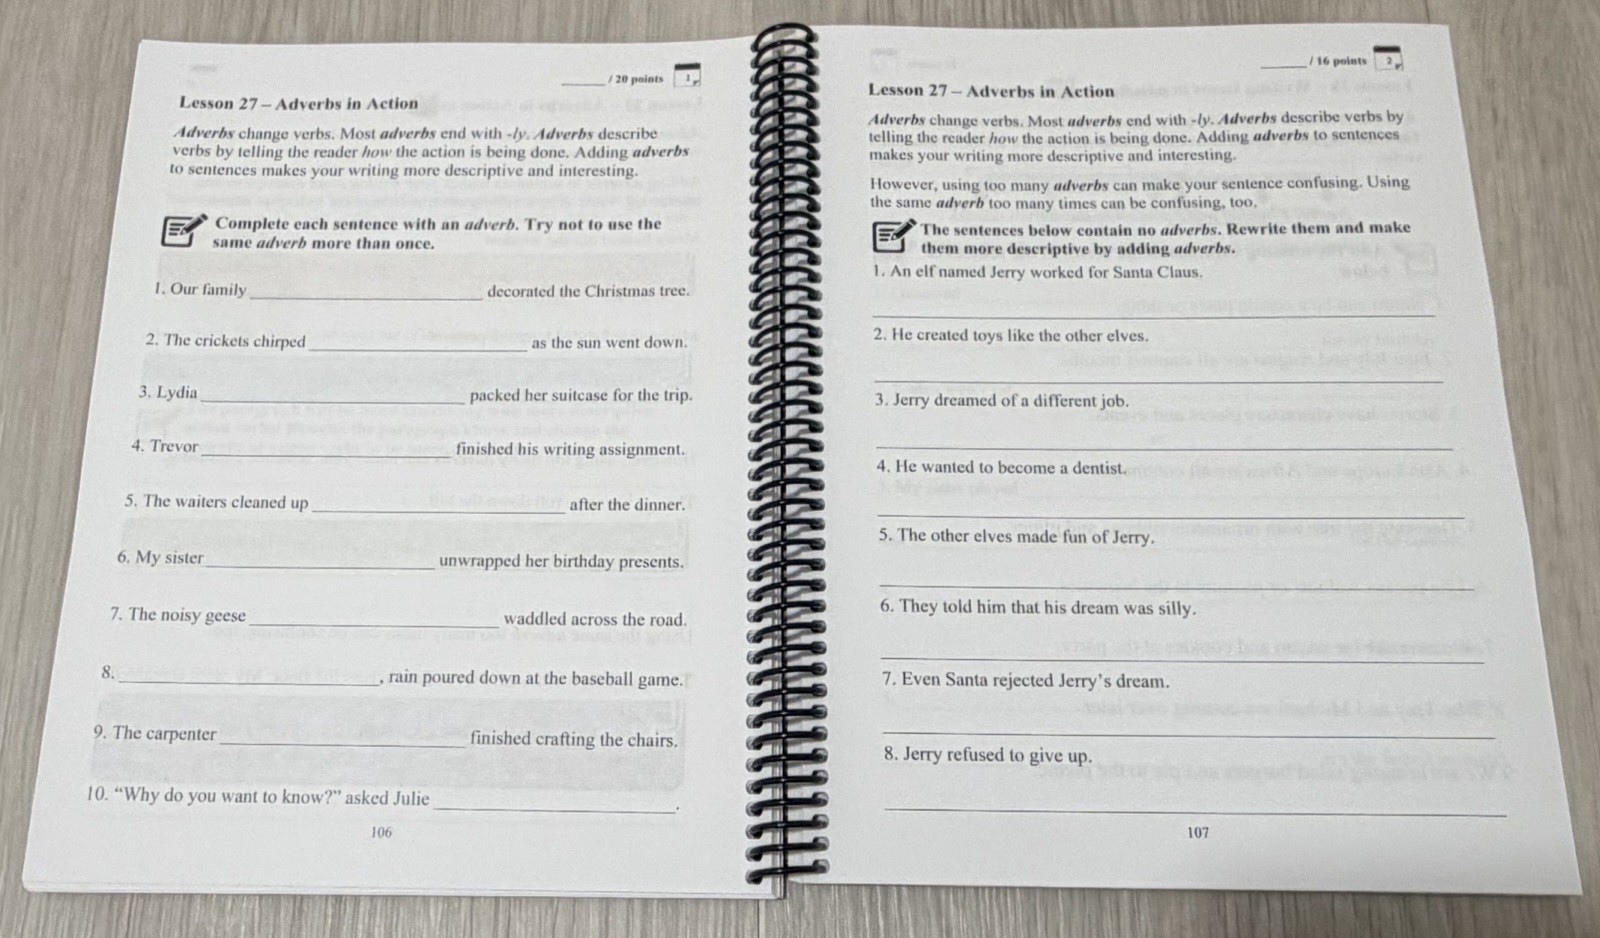 ______ / 20 points 1
Lesson 27 – Adverbs in Action
Adverbs change verbs. Most adverbs end with -ly. Adverbs describe
verbs by telling the reader how the action is being done. Adding adverbs
to sentences makes your writing more descriptive and interesting.
Complete each sentence with an adverb. Try not to use the
same adverb more than once.
1. Our family ______ decorated the Christmas tree.
2. The crickets chirped ______ as the sun went down.
3. Lydia ______ packed her suitcase for the trip.
4. Trevor ______ finished his writing assignment.
5. The waiters cleaned up ______ after the dinner.
6. My sister ______ unwrapped her birthday presents.
7. The noisy geese ______ waddled across the road.
8. ______, rain poured down at the baseball game.
9. The carpenter ______ finished crafting the chairs.
10. “Why do you want to know?” asked Julie ______.
106
______ / 16 points 2
Lesson 27 – Adverbs in Action
Adverbs change verbs. Most adverbs end with -ly. Adverbs describe verbs by
telling the reader how the action is being done. Adding adverbs to sentences
makes your writing more descriptive and interesting.
However, using too many adverbs can make your sentence confusing. Using
the same adverb too many times can be confusing, too.
The sentences below contain no adverbs. Rewrite them and make
them more descriptive by adding adverbs.
1. An elf named Jerry worked for Santa Claus.
2. He created toys like the other elves.
3. Jerry dreamed of a different job.
4. He wanted to become a dentist.
5. The other elves made fun of Jerry.
6. They told him that his dream was silly.
7. Even Santa rejected Jerry’s dream.
8. Jerry refused to give up.
107